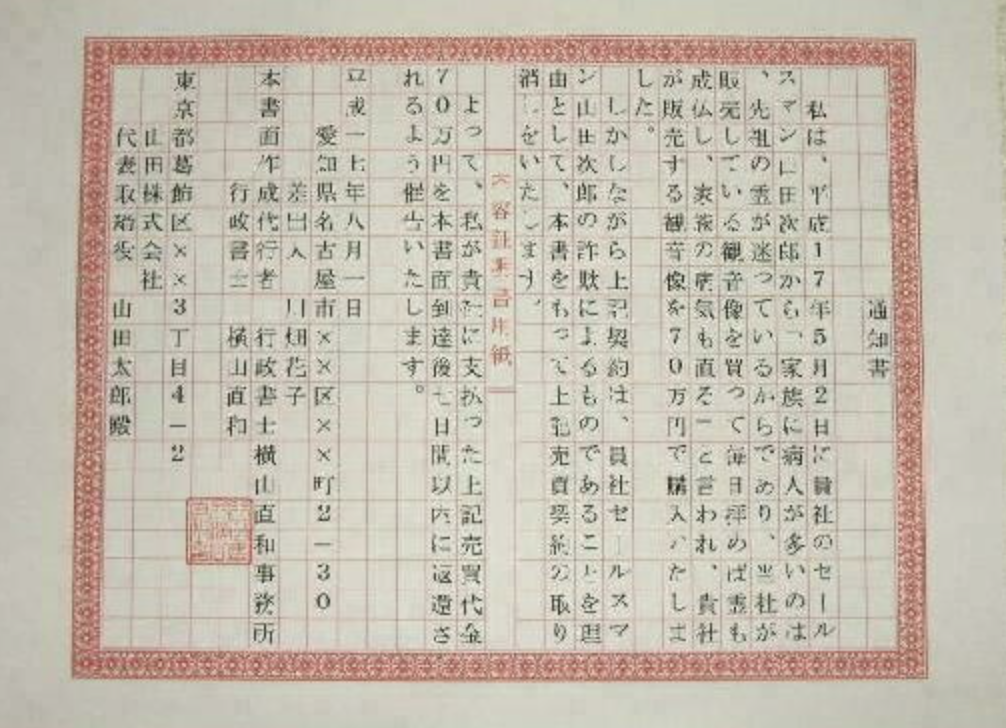 通知書
私は、平成17年5月2日に貴社のセール
スマン山田次郎から「家族に病人が多いのは
、先祖の霊が迷っているからであり、当社が
販売している観音像を買って毎日拝めば霊も
成仏し、家族の病気も直る」と言われ、貴社
が販売する観音像を70万円で購入いたしま
した。
しかしながら上記契約は、貴社セールスマ
ン山田次郎の詐欺によるものであることを理
由として、本書をもって上記売買契約の取り
消しをいたします。
内容証明書用紙
よって、私が貴社に支払った上記売買代金
70万円を本書面到達後七日間以内に返還さ
れるよう催告いたします。
平成一七年八月一日
愛知県名古屋市××区××町2-30
差出人 川畑花子
本書面作成代行者 行政書士横山直和事務所
行政書士 横山直和
東京都葛飾区××3丁目4-2
山田株式会社
代表取締役 山田太郎殿